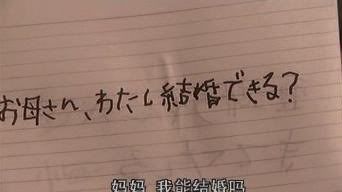 お母さん、わたし結婚できる？
妈妈 我能结婚吗